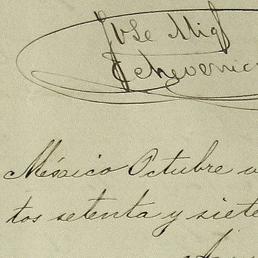 José Migl
Echeverria
México Octubre
tos setenta y siete